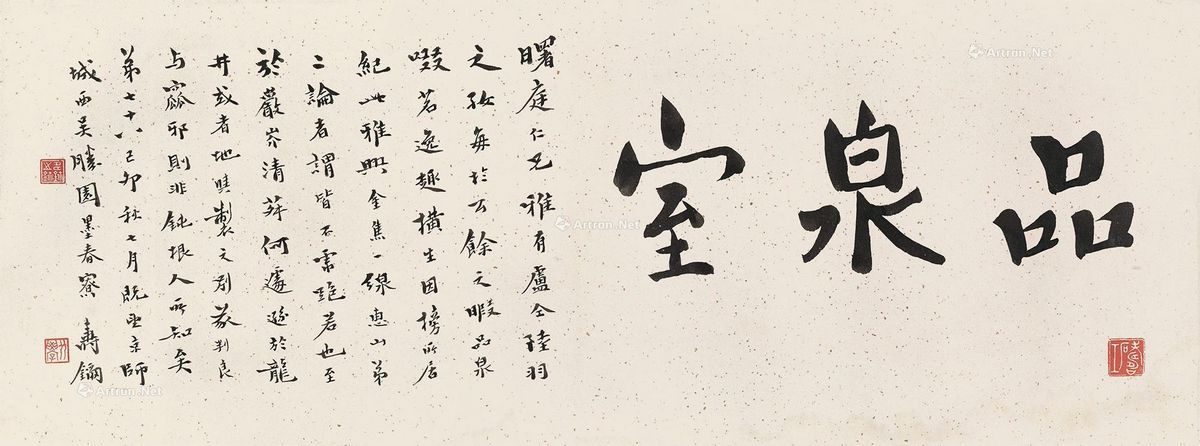 品泉室
曙庭仁兄雅有盧仝陸羽
之好每於公餘之暇品泉
啜茗逸趣橫生因榜所居
紀此雅興金焦一線惠山第
二論者謂皆不若也至
於巖岑清何處遜於龍
井或者地製之別裁判良
与窳邪則非鈍根人所知矣
弟七十八己卯秋七月既望京師
城西吳勝園墨春寮壽鑈
Artron.Net
Artron.Net
Artron.Net
Artron.Net